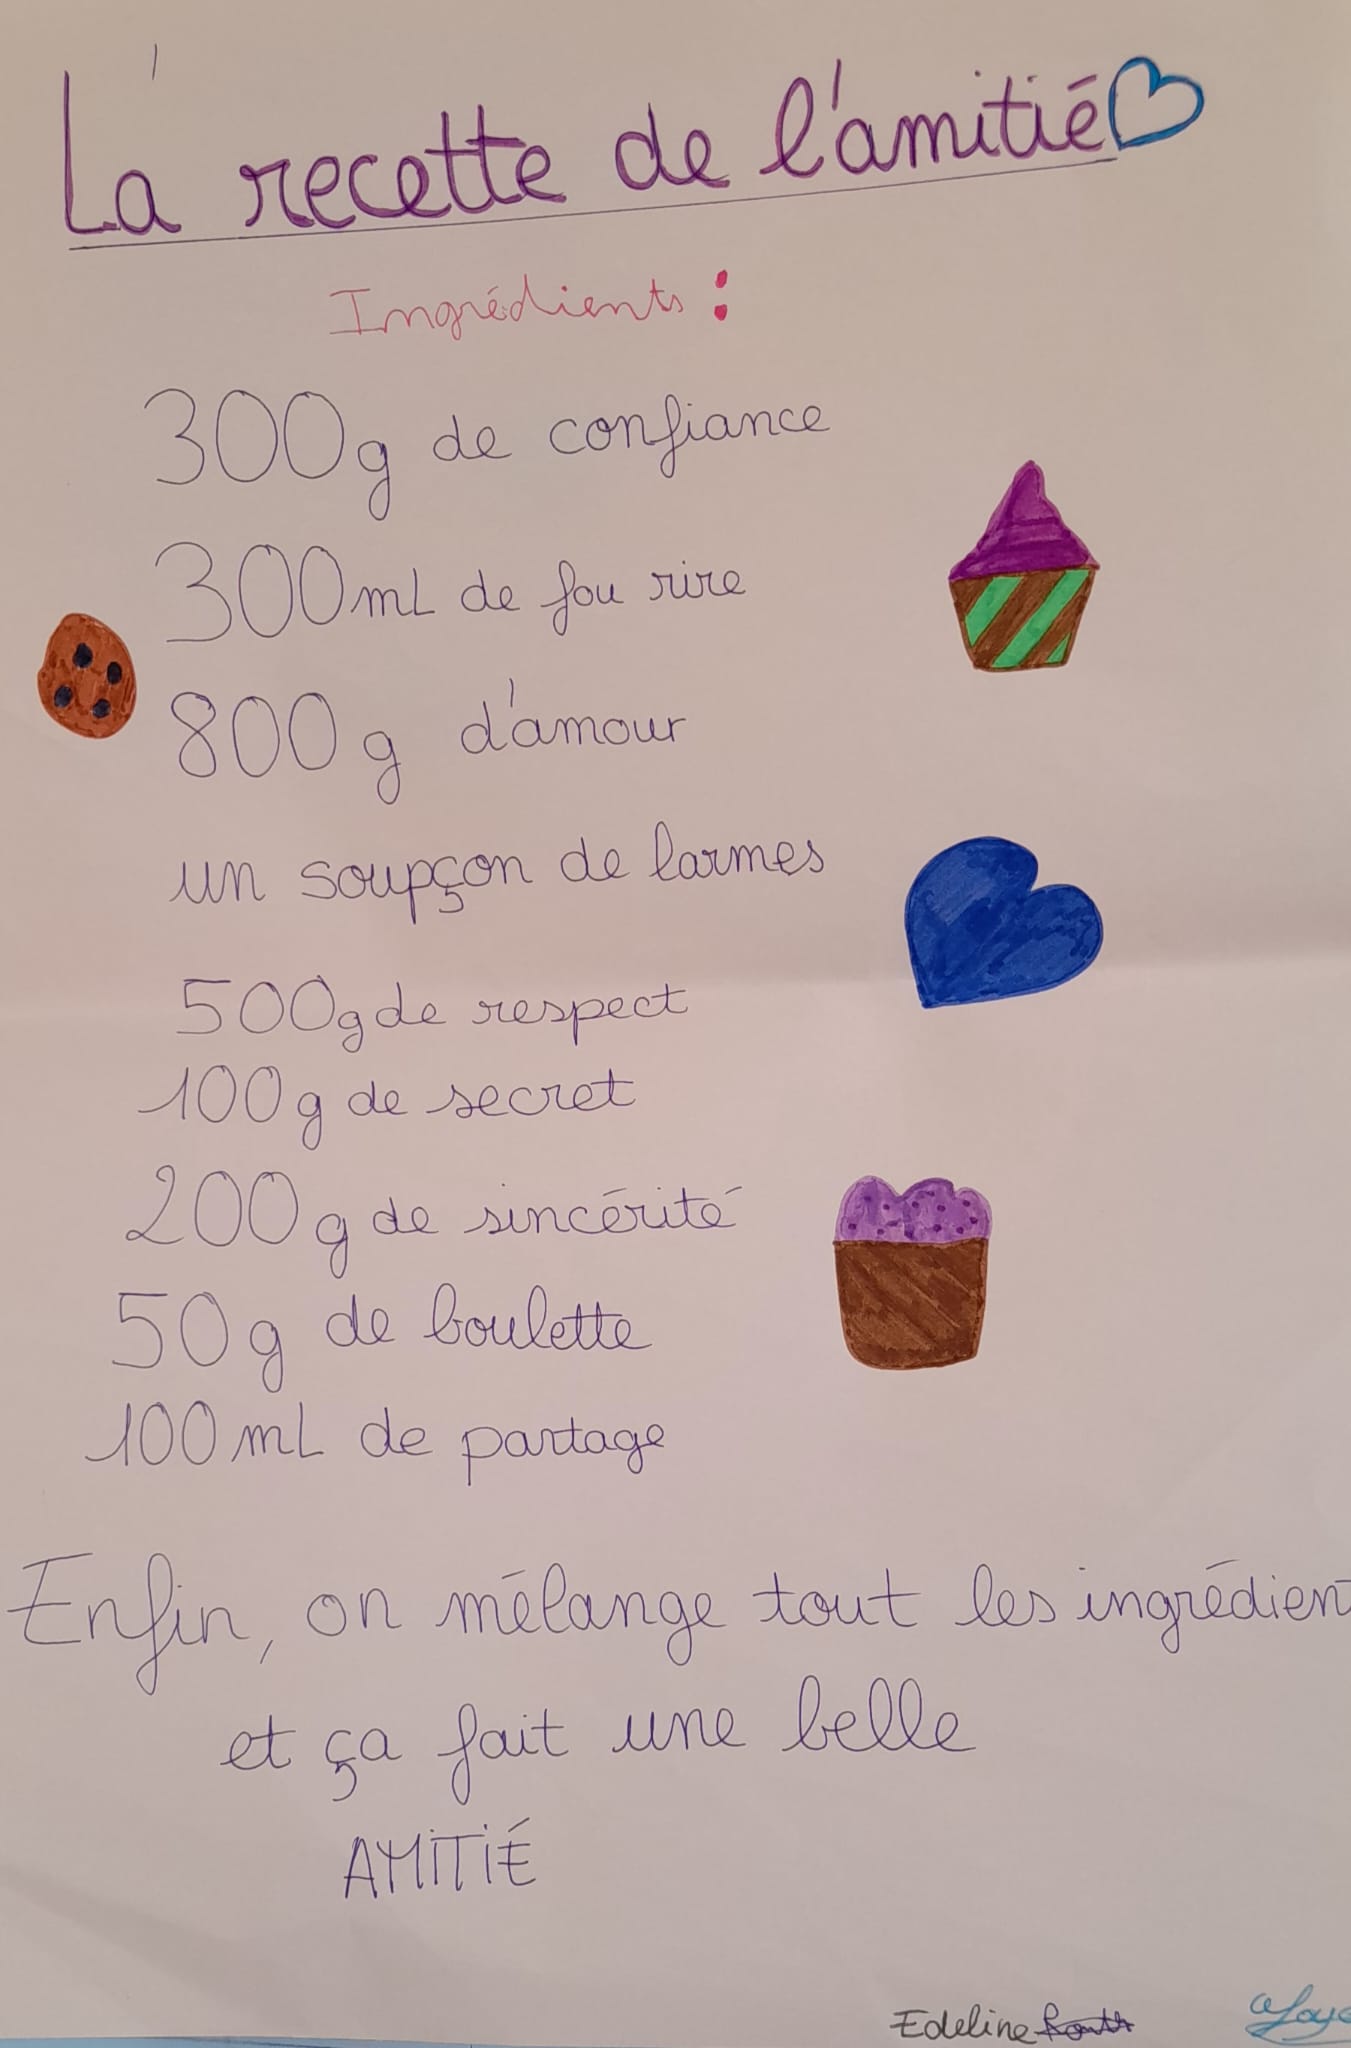 La recette de l'amitié
Ingrédients :
300g de confiance
300mL de fou rire
800g d'amour
un soupçon de larmes
500g de respect
100g de secret
200g de sincérité
50g de boulette
100mL de partage
Enfin, on mélange tout les ingrédient
et ça fait une belle
AMITIÉ
Edeline